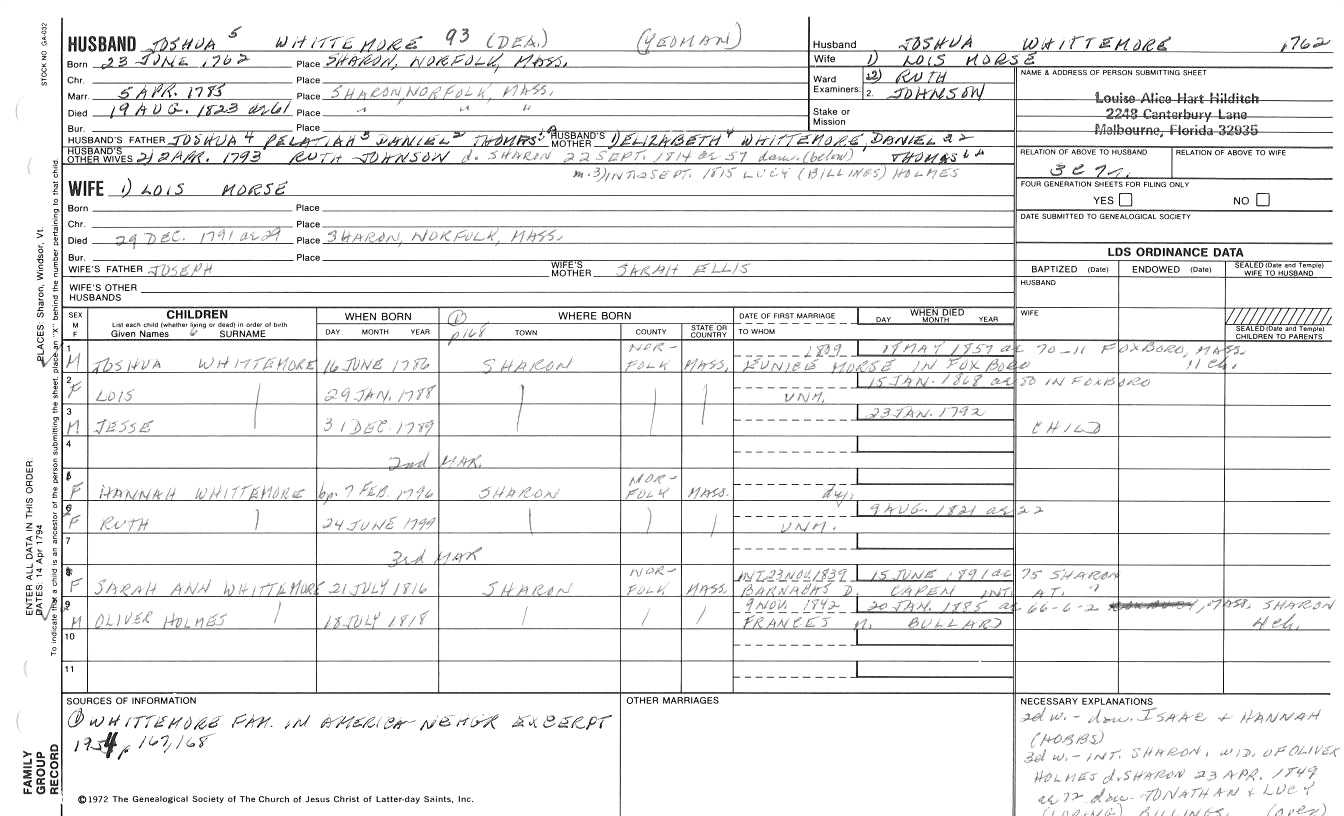 STOCK NO GA-032
HUSBAND JOSHUA 5 WHITTEMORE 93 (DEA.) (YEOMAN)
Born 23 JUNE 1762 Place SHARON, NORFOLK, MASS.
Chr. Place
Marr. 5 APR. 1785 Place SHARON, NORFOLK, MASS.
Died 19 AUG. 1823 ae 61 Place " " "
Bur. Place
HUSBAND'S FATHER JOSHUA 4 PELATIAH 3 DANIEL 2 THOMAS HUSBAND'S MOTHER 1) ELIZABETH 4 WHITTEMORE, DANIEL 2 2
HUSBAND'S OTHER WIVES 2) 2 APR. 1793 RUTH JOHNSON d. SHARON 22 SEPT. 1814 ae 57 dau. (below) THOMAS
m. 3) INT. SEPT. 1815 LUCY (BILLINGS) HOLMES
Husband JOSHUA WHITTEMORE 1762
Wife 1) LOIS MORSE
Ward Examiners: 2) RUTH
2. JOHNSON
Stake or Mission
NAME & ADDRESS OF PERSON SUBMITTING SHEET
Louise Alice Hart Hilditch
2248 Canterbury Lane
Melbourne, Florida 32935
RELATION OF ABOVE TO HUSBAND RELATION OF ABOVE TO WIFE
3C 7r.
FOUR GENERATION SHEETS FOR FILING ONLY
YES NO
DATE SUBMITTED TO GENEALOGICAL SOCIETY
WIFE 1) LOIS MORSE
Born Place
Chr. Place
Died 29 DEC. 1791 ae 29 Place SHARON, NORFOLK, MASS.
Bur. Place
WIFE'S FATHER JOSEPH WIFE'S MOTHER SARAH ELLIS
WIFE'S OTHER HUSBANDS
LDS ORDINANCE DATA
BAPTIZED (Date) ENDOWED (Date) SEALED (Date and Temple) WIFE TO HUSBAND
HUSBAND
WIFE
SEALED (Date and Temple) CHILDREN TO PARENTS
SEX M F CHILDREN List each child (whether living or dead) in order of birth Given Names 6 SURNAME
WHEN BORN DAY MONTH YEAR
WHERE BORN TOWN COUNTY STATE OR COUNTRY
① p168
DATE OF FIRST MARRIAGE TO WHOM
WHEN DIED DAY MONTH YEAR
1 M JOSHUA WHITTEMORE 16 JUNE 1786 SHARON NOR-FOLK MASS. 1839 EUNICE MORSE IN FOXBORO 19 MAY 1857 ae 70-11 FOXBORO, MASS. 11 ch.
2 F LOIS 29 JAN. 1788 UNM. 15 JAN. 1868 ae 80 IN FOXBORO
3 M JESSE 31 DEC. 1789 23 JAN. 1792 CHILD
4 2nd MAR.
F HANNAH WHITTEMORE bp. 7 FEB. 1796 SHARON NOR-FOLK MASS. dy.
6 F RUTH 24 JUNE 1799 UNM. 9 AUG. 1821 ae 22
7 3rd MAR
8 F SARAH ANN WHITTEMORE 21 JULY 1816 SHARON NOR-FOLK MASS. INT. 23 NOV. 1839 BARNABAS D. CAPEN INT. AT. " 15 JUNE 1891 ae 75 SHARON
9 M OLIVER HOLMES 18 JULY 1818 9 NOV. 1842 FRANCES M. BULLARD 20 JAN. 1885 ae 66-6-2 MASS. SHARON 4 ch.
10
11
SOURCES OF INFORMATION
① WHITTEMORE FAM. IN AMERICA NEHGR EXCERPT
1954 p. 167, 168
OTHER MARRIAGES
NECESSARY EXPLANATIONS
2d w. - dau. ISAAC & HANNAH
(HOBBS)
3d w. - INT. SHARON, WID. OF OLIVER
HOLMES d. SHARON 23 APR. 1849
ae 72 dau. JONATHAN & LUCY
(LORING) BILLINGS. (over)
©1972 The Genealogical Society of The Church of Jesus Christ of Latter-day Saints, Inc.
FAMILY GROUP RECORD
ENTER ALL DATA IN THIS ORDER:
DATES: 14 Apr 1794
PLACES: Sharon, Windsor, Vt.
To indicate that a child is an ancestor of the person submitting the sheet, place an "X" behind the number pertaining to that child.